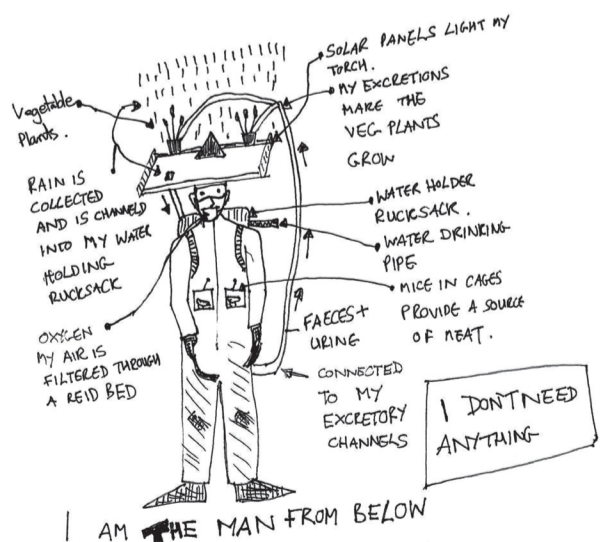 SOLAR PANELS LIGHT MY
TORCH.
MY EXCRETIONS
MAKE THE
VEG PLANTS
GROW
Vegetable
Plants.
RAIN IS
COLLECTED
AND IS CHANNELD
INTO MY WATER
HOLDING
RUCKSACK
WATER HOLDER
RUCKSACK.
WATER DRINKING
PIPE
MICE IN CAGES
PROVIDE A SOURCE
OF MEAT.
OXYGEN
MY AIR IS
FILTERED THROUGH
A REID BED
FAECES +
URINE
CONNECTED
TO MY
EXCRETORY
CHANNELS
I DONT NEED
ANYTHING
I AM THE MAN FROM BELOW